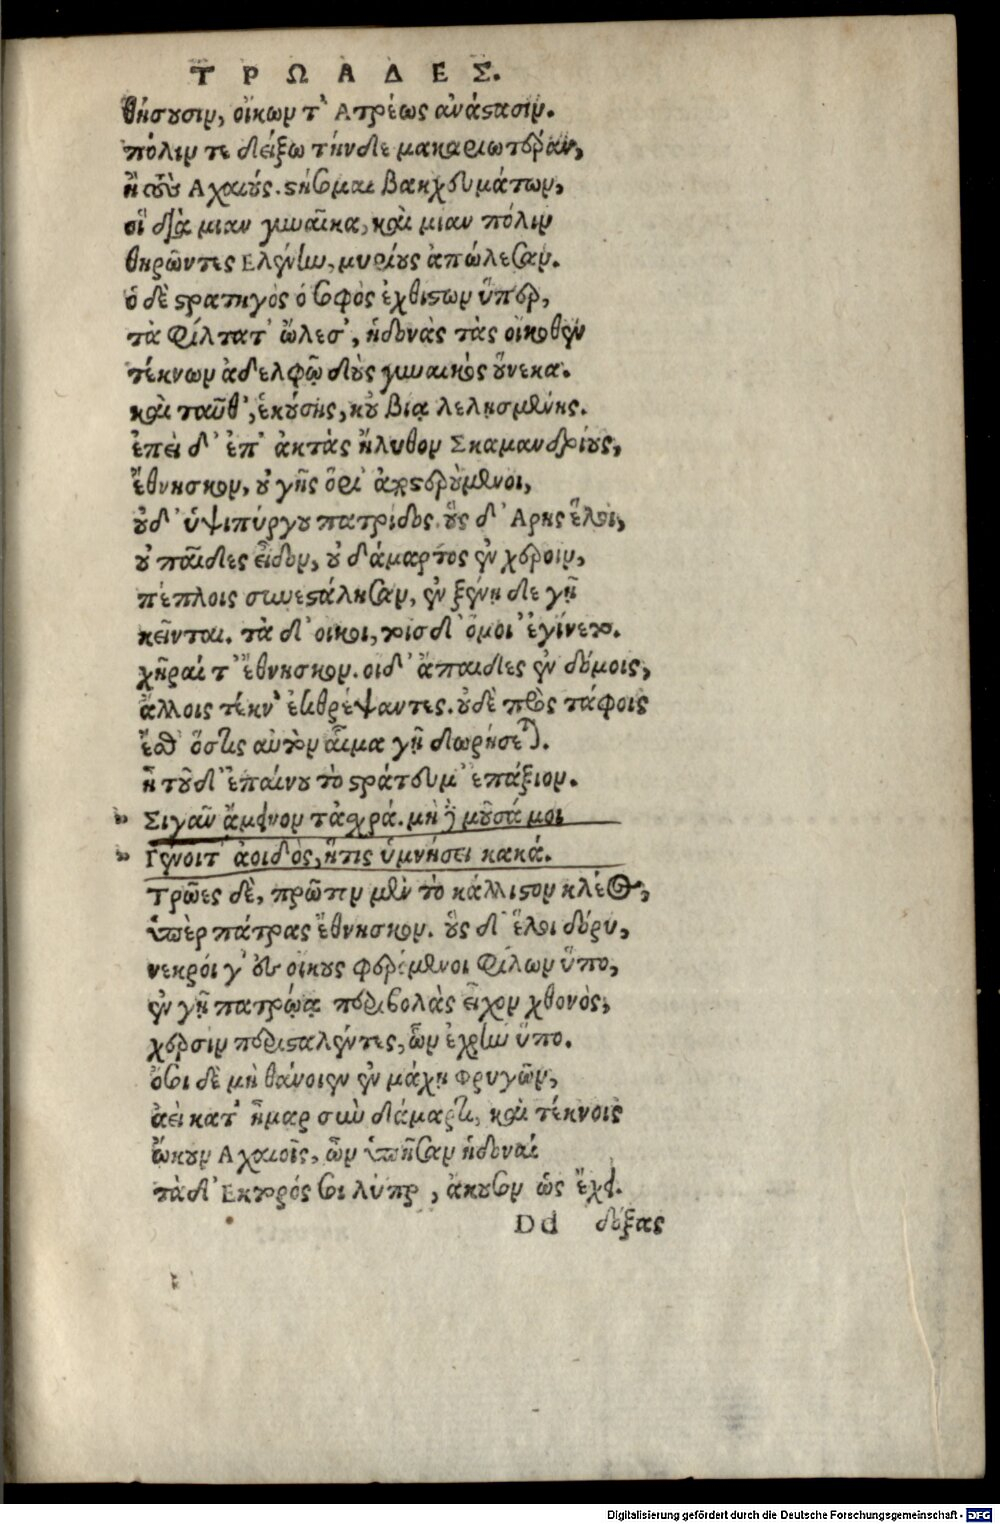 ΤΡΩΑΔΕΣ.
θήσουσιν, οἴκων τ' Ατρέως ἀνάστασιν.
πόλιν τε δείξω τήνδε μακαριωτέραν,
ἢ τοὺς Αχαιούς. στήσομαι βακχευμάτων,
οἳ διὰ μιαν γυναῖκα, καὶ μιαν πόλιν
θηρῶντες Ελένην, μυρίους ἀπώλεσαν.
ὁ δὲ στρατηγὸς ὁ σοφὸς ἐχθίστων ὕπερ,
τὰ φίλτατ' ὤλεσ', ἡδονὰς τὰς οἴκοθεν
τέκνων ἀδελφῷ δοὺς γυναικὸς οὕνεκα.
καὶ ταῦθ', ἑκούσης, κοὐ βίᾳ λελησμένης.
ἐπεὶ δ' ἐπ' ἀκτὰς ἤλυθον Σκαμανδρίους,
ἔθνησκον, οὐ γῆς ὅρι' ἀποστερούμενοι,
οὐδ' ὑψιπύργου πατρίδος. οὓς δ' Αρης ἕλοι,
οὐ παῖδες εἶδον, οὐ δάμαρτος ἐν χεροιν,
πέπλοις συνεστάλησαν, ἐν ξένῃ δε γῇ
κεῖνται. τὰ δ' οικοι, τοισδ' ὅμοι' ἐγίνετο.
χῆραί τ' ἔθνησκον. οιδ' ἄπαιδες ἐν δόμοις,
ἄλλοις τέκν' ἐκθρέψαντες. οὐδὲ πρὸς τάφοις
ἔσθ' ὅστις αὐτὸν αἷμα γῇ δωρήσεται.
ἦ τοῦδ' ἐπαίνου το στράτευμ' ἐπάξιον.
» Σιγᾶν ἄμεινον τἀχρά. μὴ δὲ μοῦσά μοι
» Γένοιτ' ἀοιδὸς, ἥτις ὑμνήσει κακά.
Τρῶες δὲ, πρῶτον μὲν τὸ κάλλιστον κλέος,
ὑπὲρ πάτρας ἔθνησκον. οὓς δ' ἕλοι δόρυ,
νεκρόι γ' ἐς οἴκους φερόμενοι φίλων ὕπο,
ἐν γῇ πατρῴᾳ περιβολὰς εἶχον χθονὸς,
χερσιν περισταλέντες, ὧν ἐχρῆν ὕπο.
ὅσοι δὲ μὴ θάνοιεν ἐν μάχῃ Φρυγῶν,
ἀεὶ κατ' ἦμαρ σὺν δάμαρτι, καὶ τέκνοις
ᾤκουν Αχαιοῖς, ὧν ὑπῆσαν ἡδοναί
τὰ δ' Εκτορός σοι λύπρ', ἀκουσον ὡς ἔχει.
Dd δόξας
Digitalisierung gefördert durch die Deutsche Forschungsgemeinschaft - DFG